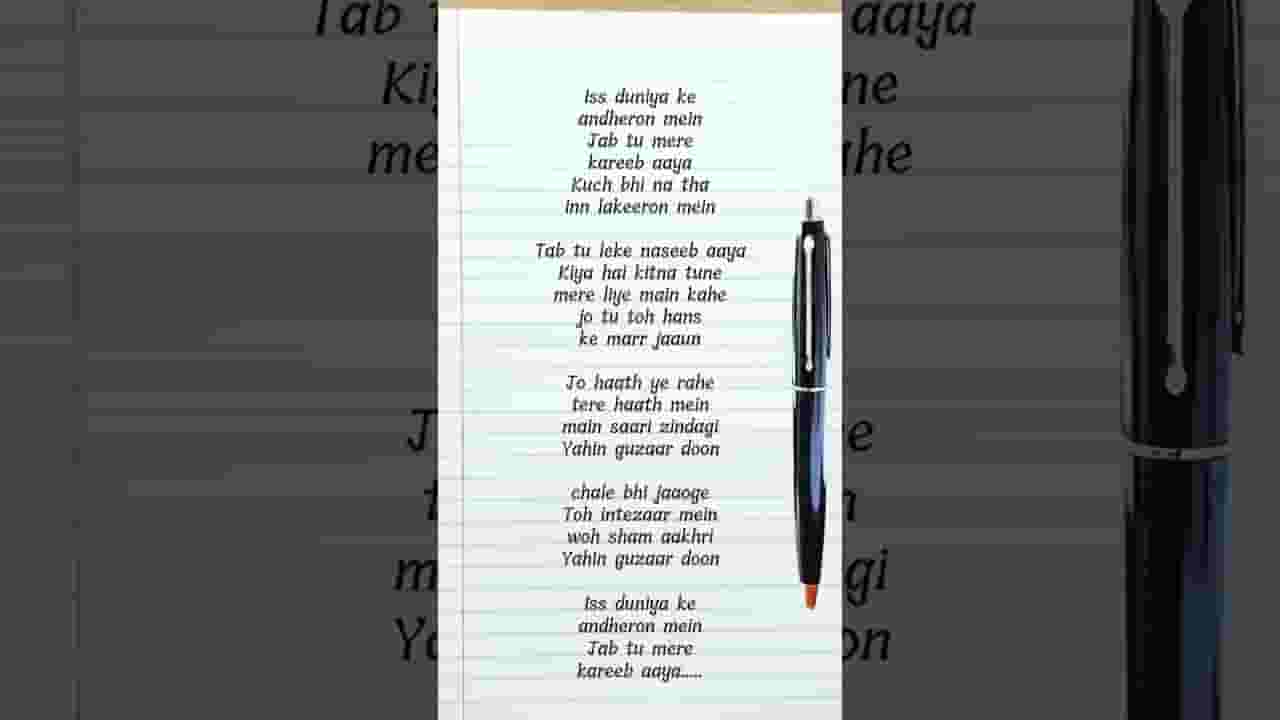 Iss duniya ke
andheron mein
Jab tu mere
kareeb aaya
Kuch bhi na tha
inn lakeeron mein
Tab tu leke naseeb aaya
Kiya hai kitna tune
mere liye main kahe
jo tu toh hans
ke marr jaaun
Jo haath ye rahe
tere haath mein
main saari zindagi
Yahin guzaar doon
chale bhi jaaoge
Toh intezaar mein
woh sham aakhri
Yahin guzaar doon
Iss duniya ke
andheron mein
Jab tu mere
kareeb aaya.....